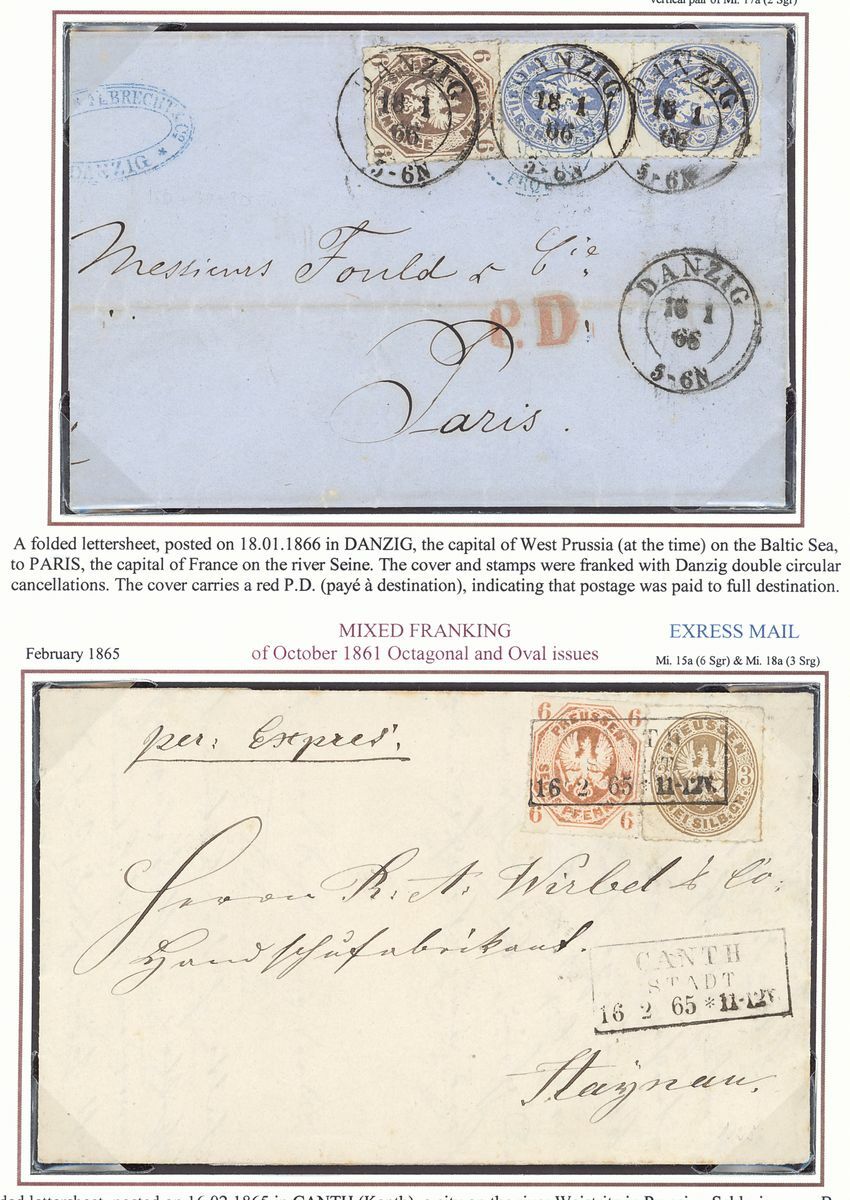 vertical pair of Mi. 17a (2 Sgr)
ALBRECHT & Co
DANZIG *
6 6
6 6
DANZIG
18 1
66
5-6N
DANZIG
18 1
66
5-6N
DANZIG
18 1
66
5-6N
Messieurs Fould & Cie
DANZIG
18 1
66
5-6N
P.D.
Paris.
A folded lettersheet, posted on 18.01.1866 in DANZIG, the capital of West Prussia (at the time) on the Baltic Sea,
to PARIS, the capital of France on the river Seine. The cover and stamps were franked with Danzig double circular
cancellations. The cover carries a red P.D. (payé à destination), indicating that postage was paid to full destination.
MIXED FRANKING
EXRESS MAIL
February 1865
of October 1861 Octagonal and Oval issues
Mi. 15a (6 Sgr) & Mi. 18a (3 Srg)
per: Expres.
6 6
PREUSSEN
SECHS PFENNINGE
6 6
PREUSSEN
3
DREI SILB.GR.
16 2 65 * 11-12V.
Herrn R. A. Wirbel & Co:
Handschufabrikant.
CANTH
STADT
16 2 65 * 11-12V
Haynau.